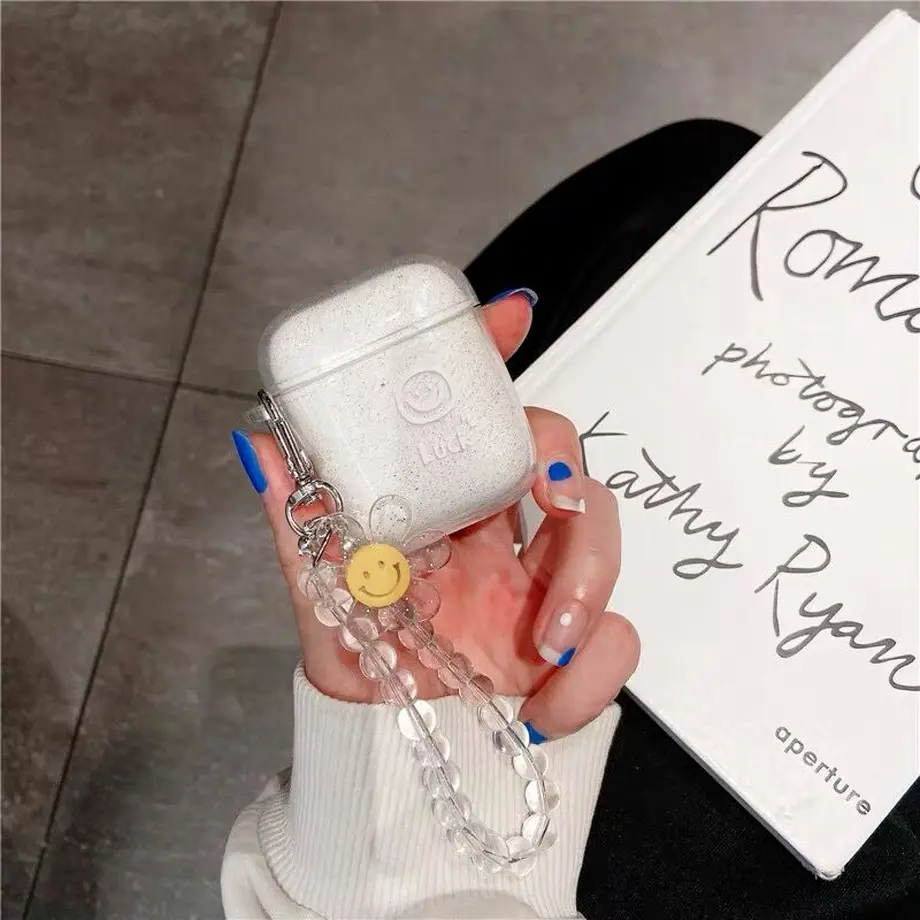 Luck
photogra
by
Kathy Ryan
aperture